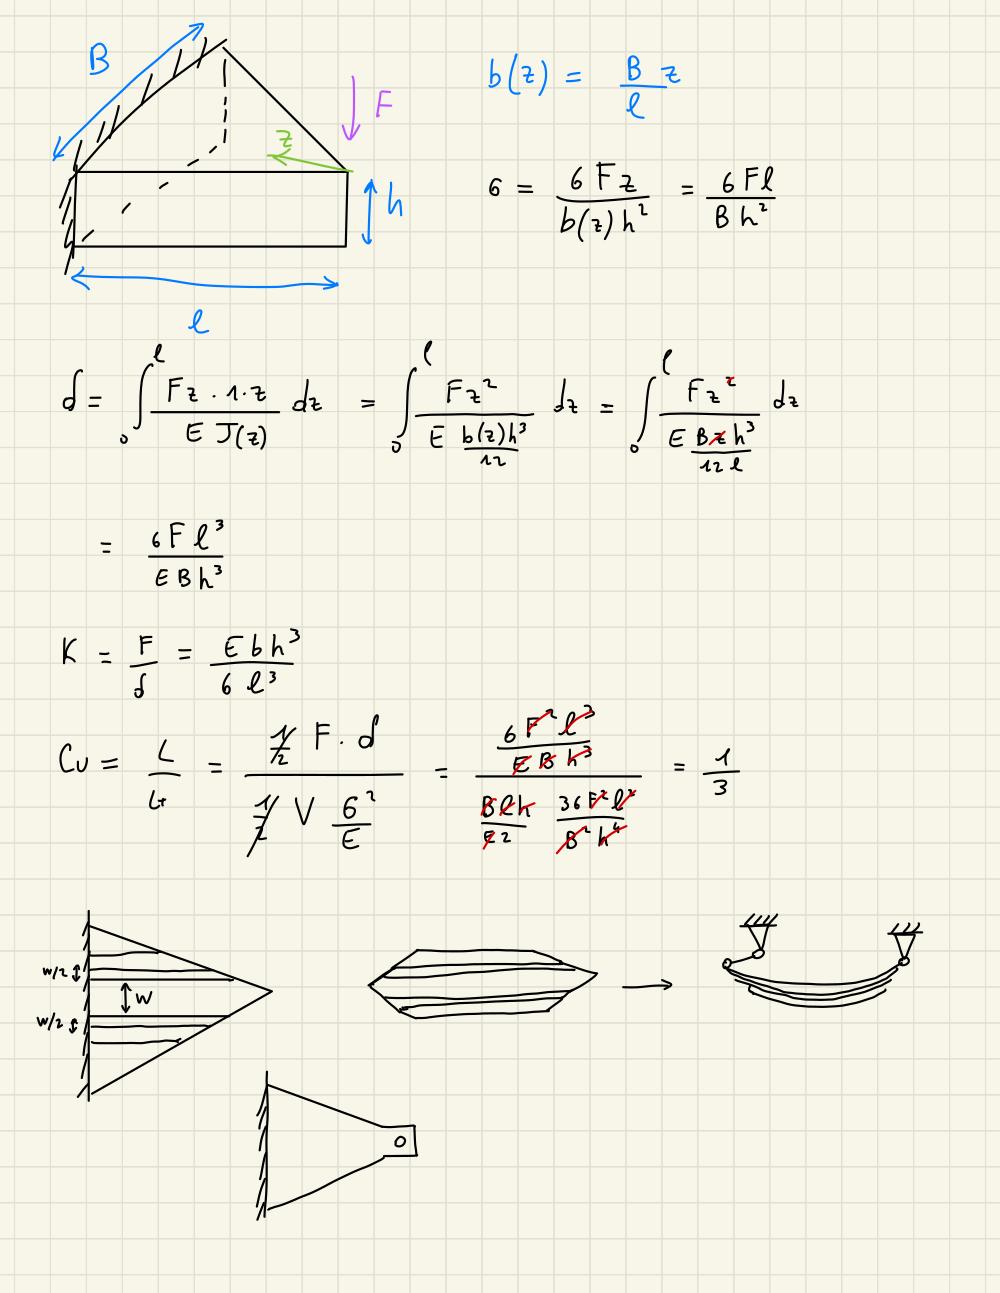 B
F
z
h
l
b(z) = B/l z
σ = 6Fz / b(z)h² = 6Fl / Bh²
δ = ∫₀ˡ Fz · 1 · z / E J(z) dz = ∫₀ˡ Fz² / (E b(z)h³/12) dz = ∫₀ˡ Fz² / (E Bzh³/12l) dz
= 6Fl³ / EBh³
K = F/δ = Ebh³ / 6l³
Cu = L/L* = ½ F · δ / (½ V σ²/E) = (6F²l³ / EBh³) / (Blh/E2 36F²l²/B²h⁴) = 1/3
w/2
w
w/2